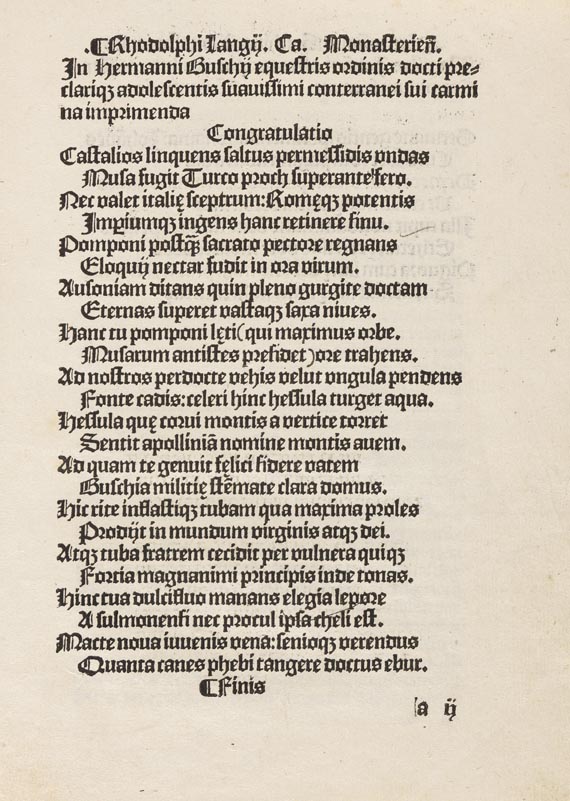 .⸿Rhodolphi Langij. Ca. Monasterieñ.
In Hermanni Buschij equestris ordinis docti pre⸗
clariqꝫ adolescentis suauissimi conterranei sui carmi
na imprimenda
Congratulatio
Castalios linquens saltus permessidis vndas
Musa fugit Turco proch superante fero.
Nec valet italię sceptrum: Romęqꝫ potentis
Imperiumqꝫ ingens hanc retinere sinu.
Pomponi postqꝫ̃ sacrato pectore regnans
Eloquij nectar fudit in ora virum.
Ausoniam ditans quin pleno gurgite doctam
Eternas superet vastaqꝫ saxa niues.
Hanc tu pomponi lęti (qui maximus orbe.
Musarum antistes presidet) ore trahens.
Ad nostros perdocte vehis velut vngula pendens
Fonte cadis: celeri hinc hessula turget aqua.
Hessula quę corui montis a vertice torret
Sentit apolliniã nomine montis auem.
Ad quam te genuit fęlici sidere vatem
Buschia militię stẽmate clara domus.
Hic rite inflastiqꝫ tubam qua maxima proles
Prodijt in mundum virginis atqꝫ dei.
Atqꝫ tuba fratrem cecidit per vulnera quiqꝫ
Fortia magnanimi principis inde tonas.
Hinc tua dulcifluo manans elegia lepore
A sulmonensi nec procul ipsa cheli est.
Macte noua iuvenis vena: senioqꝫ verendus
Quanta canes phebi tangere doctus ebur.
⸿Finis
a ij